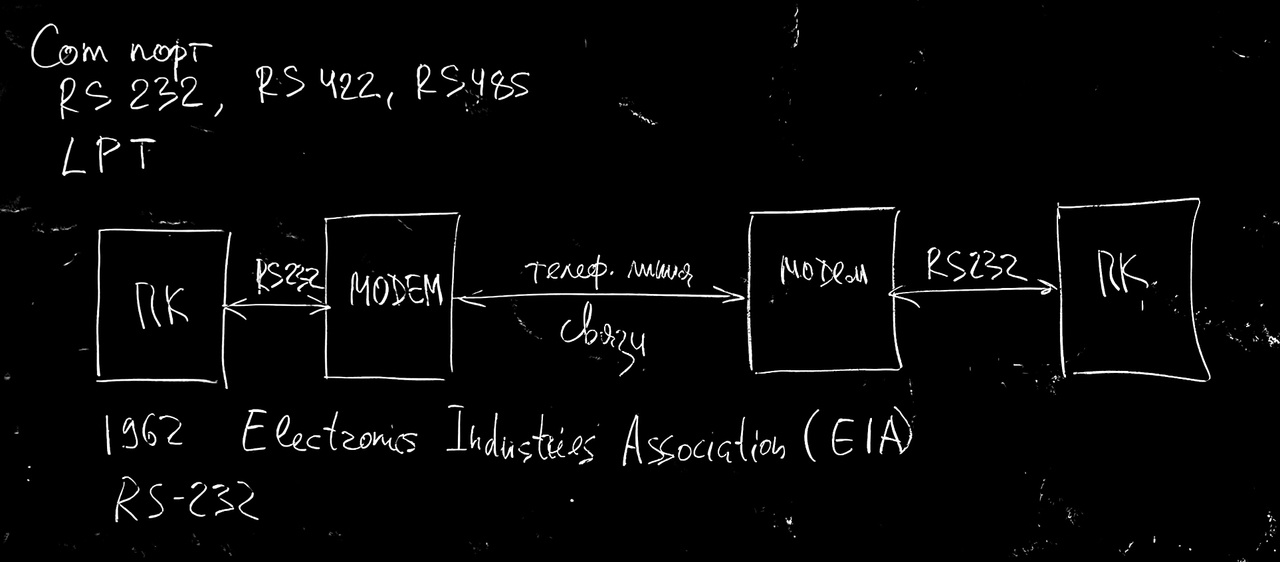 Com порт
RS 232, RS 422, RS 485
LPT
ПК
RS232
MODEM
телеф. линия
связи
MODEM
RS232
ПК
1962 Electronics Industries Association (EIA)
RS-232